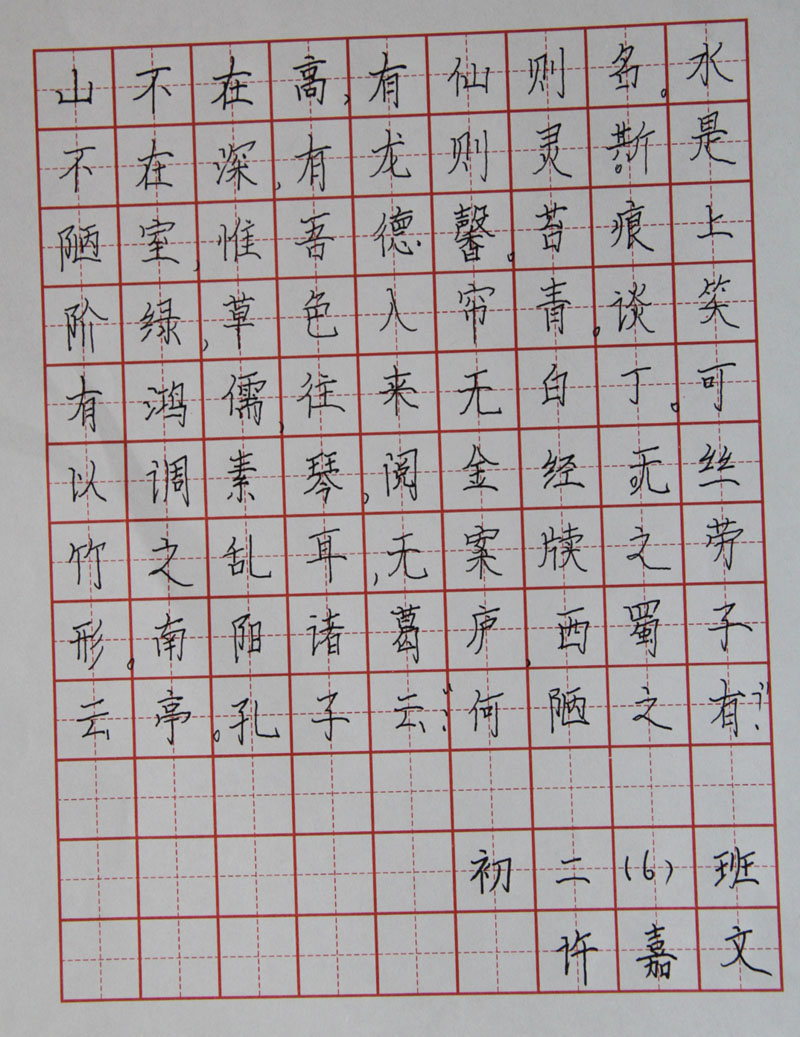 山不在高,有仙则名。水
不在深,有龙则灵。斯是
陋室,惟吾德馨。苔痕上
阶绿,草色入帘青。谈笑
有鸿儒,往来无白丁。可
以调素琴,阅金经无丝
竹之乱耳,无案牍之劳
形。南阳诸葛庐,西蜀子
云亭。孔子云:“何陋之有?”
初二(6)班
许嘉文